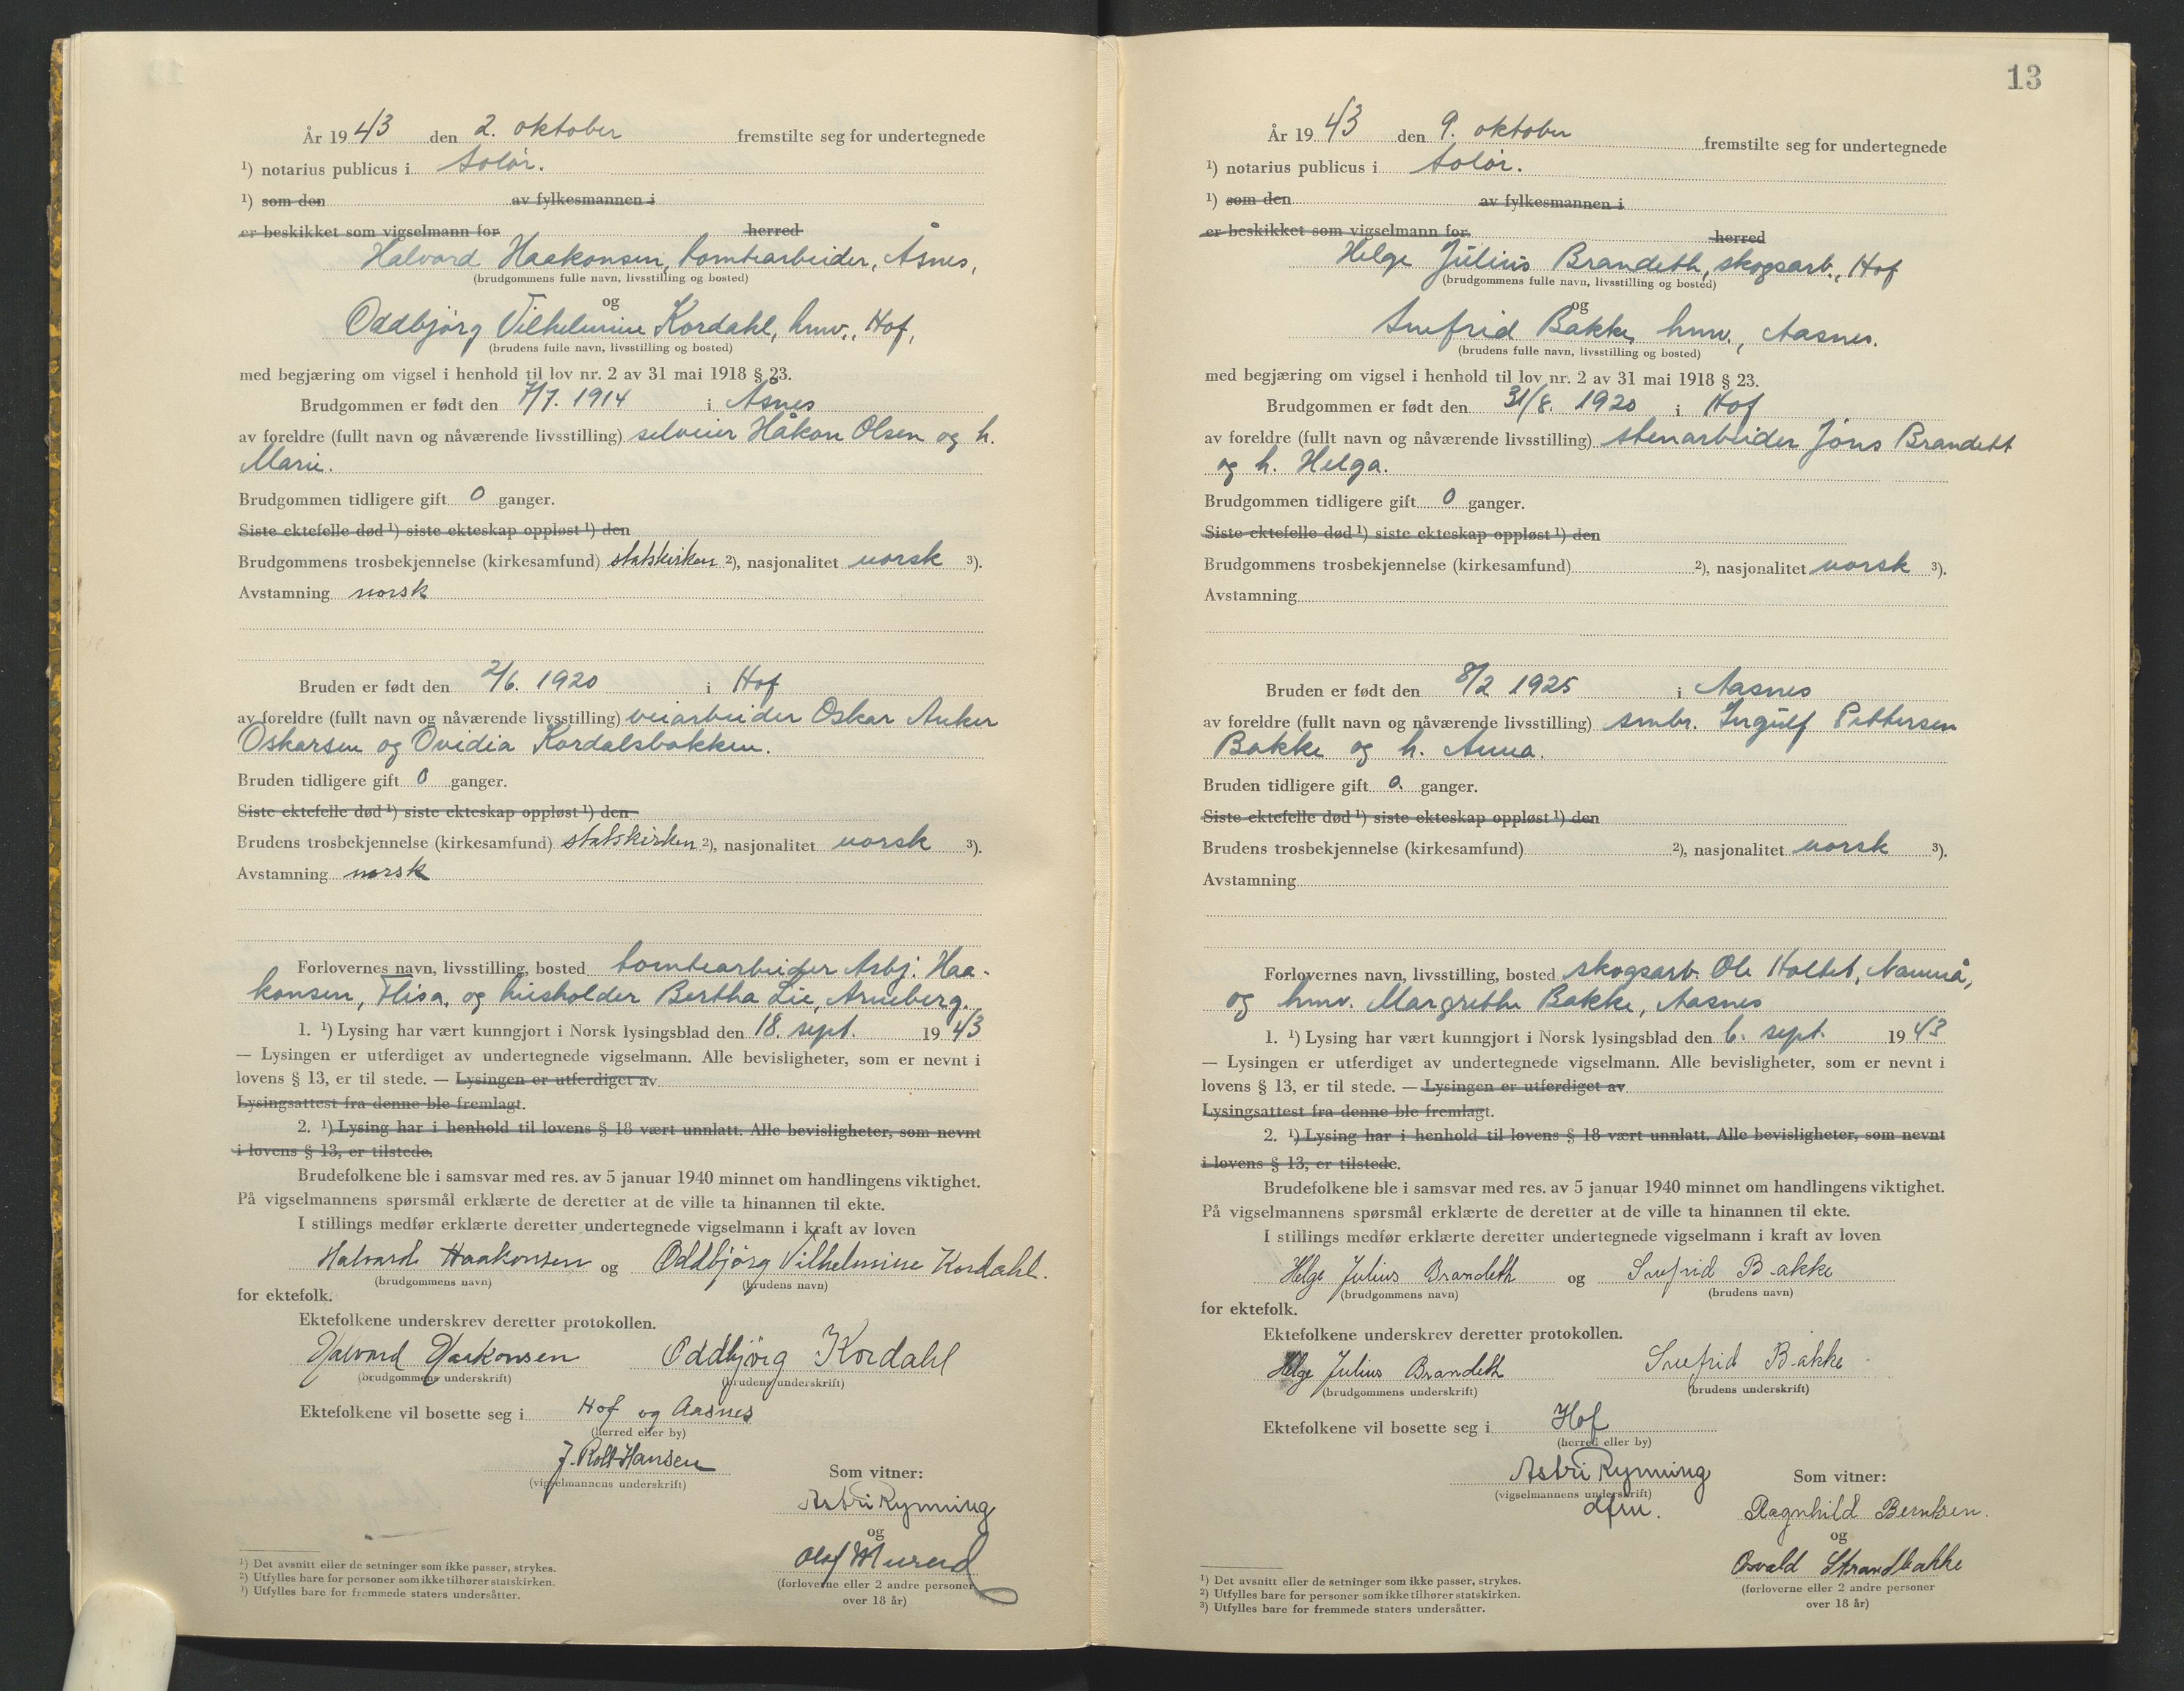 År 1943 den 2. oktober fremstilte seg for undertegnede
¹) notarius publicus i Solør.
¹) som den av fylkesmannen i
er beskikket som vigselmann for herred
Halvard Haakonsen, tomtearbeider, Åsnes,
(brudgommens fulle navn, livsstilling og bosted)
og
Oddbjørg Vilhelmine Kordahl, hmv., Hof,
(brudens fulle navn, livsstilling og bosted)
med begjæring om vigsel i henhold til lov nr. 2 av 31 mai 1918 § 23.
Brudgommen er født den 7/7. 1914 i Åsnes
av foreldre (fullt navn og nåværende livsstilling) selveier Håkon Olsen og h.
Marie.
Brudgommen tidligere gift 0 ganger.
Siste ektefelle død ¹) siste ekteskap oppløst ¹) den
Brudgommens trosbekjennelse (kirkesamfund) statskirken ²), nasjonalitet norsk ³).
Avstamning norsk
Bruden er født den 2/6. 1920 i Hof
av foreldre (fullt navn og nåværende livsstilling) veiarbeider Oskar Anker
Oskarsen og Ovidia Kordalsbakken.
Bruden tidligere gift 0 ganger.
Siste ektefelle død ¹) siste ekteskap oppløst ¹) den
Brudens trosbekjennelse (kirkesamfund) statskirken ²), nasjonalitet norsk ³).
Avstamning norsk
Forlovernes navn, livsstilling, bosted tomtearbeider Asbj. Haa-
konsen, Flisa, og husholder Bertha Lie, Arneberg.
1. ¹) Lysing har vært kunngjort i Norsk lysingsblad den 18. sept. 1943
— Lysingen er utferdiget av undertegnede vigselmann. Alle bevisligheter, som er nevnt i
lovens § 13, er til stede. — Lysingen er utferdiget av
Lysingsattest fra denne ble fremlagt.
2. ¹) Lysing har i henhold til lovens § 18 vært unnlatt. Alle bevisligheter, som nevnt
i lovens § 13, er tilstede.
Brudefolkene ble i samsvar med res. av 5 januar 1940 minnet om handlingens viktighet.
På vigselmannens spørsmål erklærte de deretter at de ville ta hinannen til ekte.
I stillings medfør erklærte deretter undertegnede vigselmann i kraft av loven
Halvard Haakonsen og Oddbjörg Vilhelmine Kordahl.
(brudgommens navn) (brudens navn)
for ektefolk.
Ektefolkene underskrev deretter protokollen.
Halvard Haakonsen Oddbjörg Kordahl
(brudgommens underskrift) (brudens underskrift)
Ektefolkene vil bosette seg i Hof og Aasnes
(herred eller by)
J. Roll-Hansen
(vigselmannens underskrift)
Som vitner:
Astri Rynning
og
Olaf Murud
(forloverne eller 2 andre personer
over 18 år)
¹) Det avsnitt eller de setninger som ikke passer, strykes.
²) Utfylles bare for personer som ikke tilhører statskirken.
³) Utfylles bare for fremmede staters undersåtter.
13
År 1943 den 9. oktober fremstilte seg for undertegnede
¹) notarius publicus i Solør.
¹) som den av fylkesmannen i
er beskikket som vigselmann for herred
Helge Julius Brandeth, skogsarb., Hof
(brudgommens fulle navn, livsstilling og bosted)
og
Snefrid Bakke, hmv., Aasnes.
(brudens fulle navn, livsstilling og bosted)
med begjæring om vigsel i henhold til lov nr. 2 av 31 mai 1918 § 23.
Brudgommen er født den 31/8. 1920 i Hof
av foreldre (fullt navn og nåværende livsstilling) stenarbeider Jöns Brandett
og h. Helga.
Brudgommen tidligere gift 0 ganger.
Siste ektefelle død ¹) siste ekteskap oppløst ¹) den
Brudgommens trosbekjennelse (kirkesamfund) ²), nasjonalitet norsk ³).
Avstamning
Bruden er født den 8/2 1925 i Aasnes
av foreldre (fullt navn og nåværende livsstilling) smbr. Ingulf Pettersen
Bakke og h. Anna.
Bruden tidligere gift 0. ganger.
Siste ektefelle død ¹) siste ekteskap oppløst ¹) den
Brudens trosbekjennelse (kirkesamfund) ²), nasjonalitet norsk ³).
Avstamning
Forlovernes navn, livsstilling, bosted skogsarb. Ole Holtet, Namnå,
og hmv. Margrethe Bakke, Aasnes
1. ¹) Lysing har vært kunngjort i Norsk lysingsblad den 6. sept. 1943
— Lysingen er utferdiget av undertegnede vigselmann. Alle bevisligheter, som er nevnt i
lovens § 13, er til stede. — Lysingen er utferdiget av
Lysingsattest fra denne ble fremlagt.
2. ¹) Lysing har i henhold til lovens § 18 vært unnlatt. Alle bevisligheter, som nevnt
i lovens § 13, er tilstede.
Brudefolkene ble i samsvar med res. av 5 januar 1940 minnet om handlingens viktighet.
På vigselmannens spørsmål erklærte de deretter at de ville ta hinannen til ekte.
I stillings medfør erklærte deretter undertegnede vigselmann i kraft av loven
Helge Julius Brandeth og Snefrid Bakke
(brudgommens navn) (brudens navn)
for ektefolk.
Ektefolkene underskrev deretter protokollen.
Helge Julius Brandeth Snefrid Bakke
(brudgommens underskrift) (brudens underskrift)
Ektefolkene vil bosette seg i Hof
(herred eller by)
Astri Rynning
(vigselmannens underskrift)
dfm.
Som vitner:
Ragnhild Berntsen.
og
Osvald Strandbakke
(forloverne eller 2 andre personer
over 18 år)
¹) Det avsnitt eller de setninger som ikke passer, strykes.
²) Utfylles bare for personer som ikke tilhører statskirken.
³) Utfylles bare for fremmede staters undersåtter.